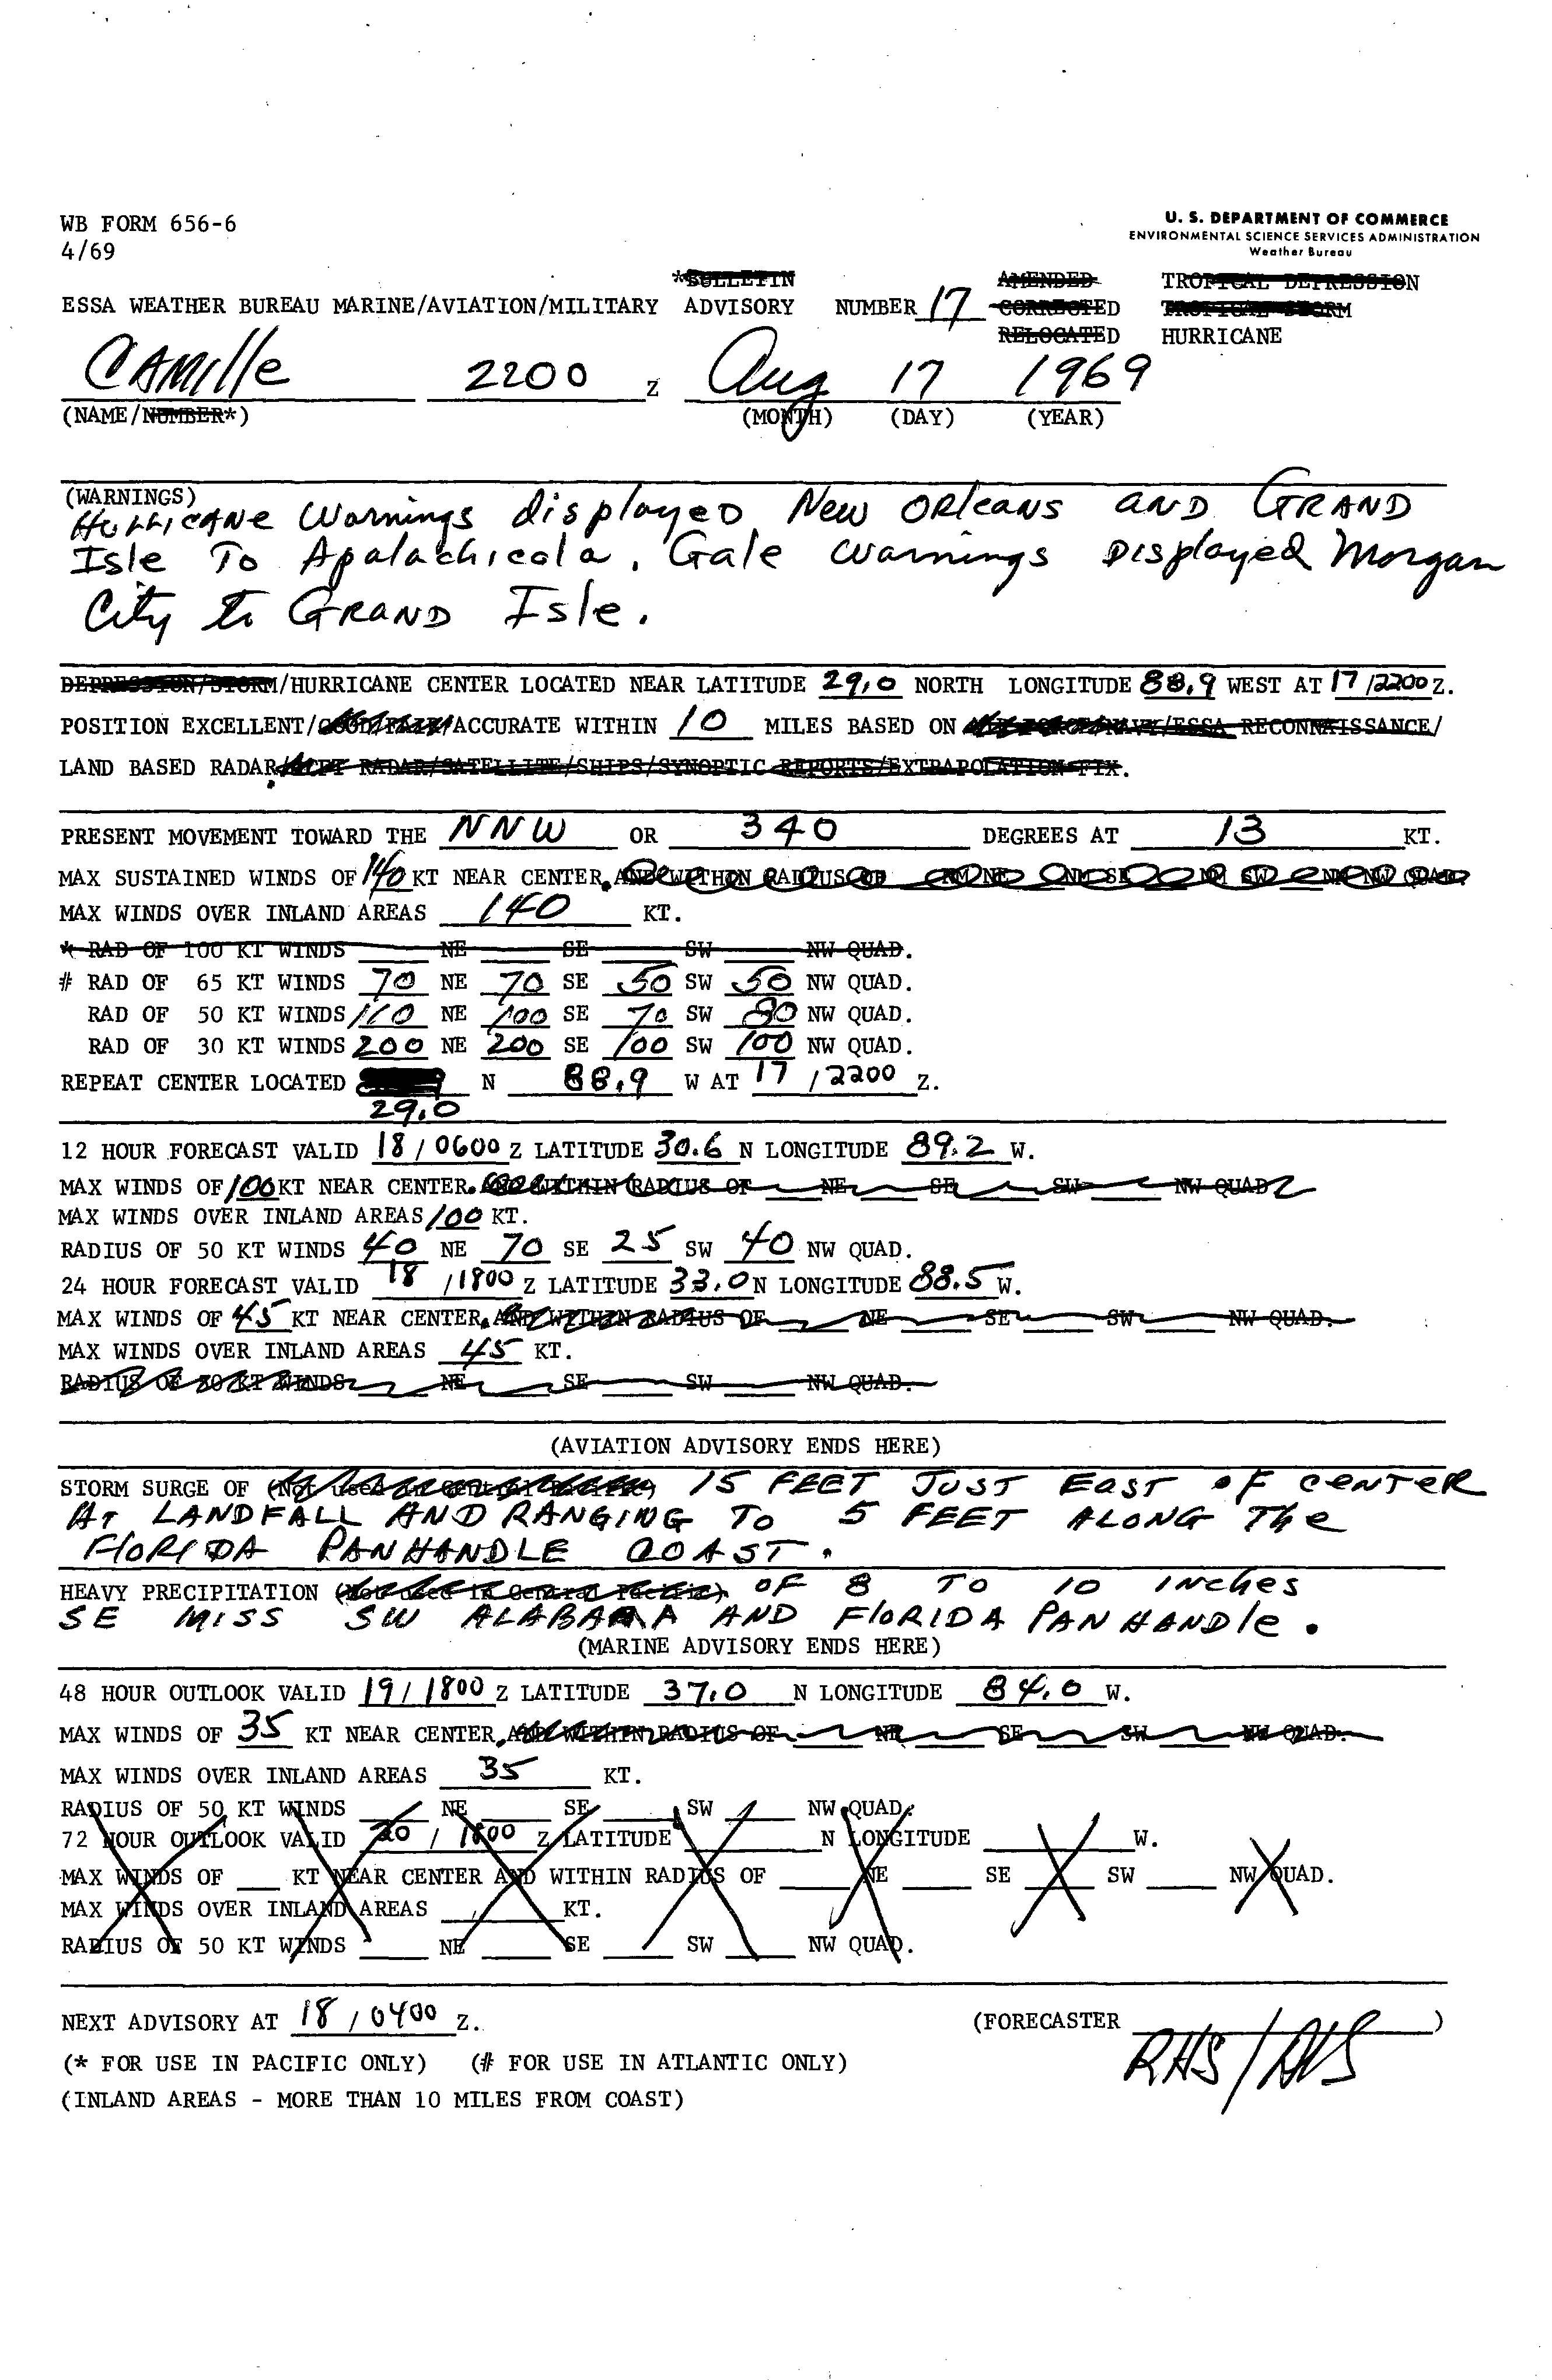 WB FORM 656-6
4/69
U. S. DEPARTMENT OF COMMERCE
ENVIRONMENTAL SCIENCE SERVICES ADMINISTRATION
Weather Bureau
*BULLETIN AMENDED TROPICAL DEPRESSION
ESSA WEATHER BUREAU MARINE/AVIATION/MILITARY ADVISORY NUMBER 17 CORRECTED TROPICAL STORM
RELOCATED HURRICANE
CAMille 2200 Z Aug 17 1969
(NAME/NUMBER*) (MONTH) (DAY) (YEAR)
(WARNINGS)
HURRICANE Warnings displayed New ORleans AND GRAND
Isle To Apalachicola. Gale warnings Displayed Morgan
City to GRAND Isle.
DEPRESSION/STORM/HURRICANE CENTER LOCATED NEAR LATITUDE 29.0 NORTH LONGITUDE 88.9 WEST AT 17/2200 Z.
POSITION EXCELLENT/GOOD/FAIR/ACCURATE WITHIN 10 MILES BASED ON AIR FORCE/NAVY/ESSA RECONNAISSANCE/
LAND BASED RADAR/ACFT RADAR/SATELLITE/SHIPS/SYNOPTIC REPORTS/EXTRAPOLATION FIX.
PRESENT MOVEMENT TOWARD THE NNW OR 340 DEGREES AT 13 KT.
MAX SUSTAINED WINDS OF 140 KT NEAR CENTER. AND WITHIN RADIUS OF NM NE NM SE NM SW NM NW QUAD.
MAX WINDS OVER INLAND AREAS 140 KT.
* RAD OF 100 KT WINDS NE SE SW NW QUAD.
# RAD OF 65 KT WINDS 70 NE 70 SE 50 SW 50 NW QUAD.
RAD OF 50 KT WINDS 110 NE 100 SE 70 SW 80 NW QUAD.
RAD OF 30 KT WINDS 200 NE 200 SE 100 SW 100 NW QUAD.
REPEAT CENTER LOCATED N 88.9 W AT 17 / 2200 Z.
29.0
12 HOUR FORECAST VALID 18 / 0600 Z LATITUDE 30.6 N LONGITUDE 89.2 W.
MAX WINDS OF 100 KT NEAR CENTER. AND WITHIN RADIUS OF NE SE SW NW QUAD
MAX WINDS OVER INLAND AREAS 100 KT.
RADIUS OF 50 KT WINDS 40 NE 70 SE 25 SW 40 NW QUAD.
24 HOUR FORECAST VALID 18 /1800 Z LATITUDE 33.0 N LONGITUDE 88.5 W.
MAX WINDS OF 45 KT NEAR CENTER. AND WITHIN RADIUS OF NE SE SW NW QUAD.
MAX WINDS OVER INLAND AREAS 45 KT.
RADIUS OF 50 KT WINDS NE SE SW NW QUAD.
(AVIATION ADVISORY ENDS HERE)
STORM SURGE OF (Not used in Central Pacific) 15 FEET JUST EAST OF CENTER
AT LANDFALL AND RANGING TO 5 FEET ALONG THe
FloRIDA PANHANDLE COAST.
HEAVY PRECIPITATION (Not used in Central Pacific) OF 8 TO 10 INches
SE MISS SW ALABAMA AND FloRIDA PANHANDle.
(MARINE ADVISORY ENDS HERE)
48 HOUR OUTLOOK VALID 19/ 1800 Z LATITUDE 37.0 N LONGITUDE 84.0 W.
MAX WINDS OF 35 KT NEAR CENTER. AND WITHIN RADIUS OF NE SE SW NW QUAD.
MAX WINDS OVER INLAND AREAS 35 KT.
RADIUS OF 50 KT WINDS NE SE SW NW QUAD.
72 HOUR OUTLOOK VALID 20 / 1800 Z LATITUDE N LONGITUDE W.
MAX WINDS OF KT NEAR CENTER AND WITHIN RADIUS OF NE SE SW NW QUAD.
MAX WINDS OVER INLAND AREAS KT.
RADIUS OF 50 KT WINDS NE SE SW NW QUAD.
NEXT ADVISORY AT 18 / 0400 Z. (FORECASTER RHS/ )
(* FOR USE IN PACIFIC ONLY) (# FOR USE IN ATLANTIC ONLY)
(INLAND AREAS - MORE THAN 10 MILES FROM COAST)